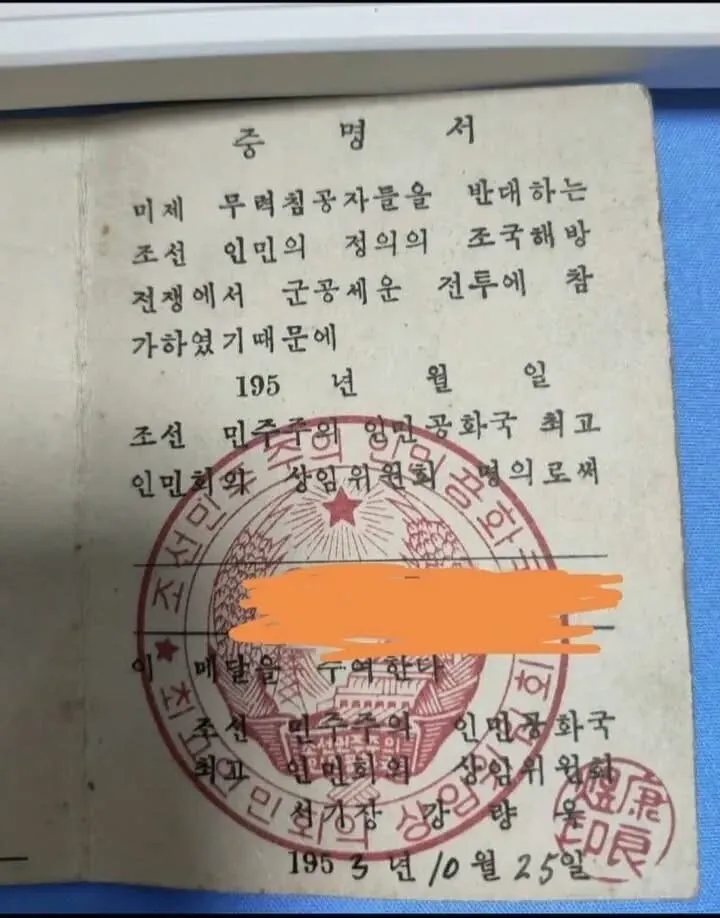 중 명 서
미제 무력침공자들을 반대하는
조선 인민의 정의의 조국해방
전쟁에서 군공세운 전투에 참
가하였기때문에
195 년 월 일
조선 민주주의 인민공화국 최고
인민회의 상임위원회 명의로써
이 메달을 수여한다
조선 민주주의 인민공화국
최고 인민회의 상임위원회
서기장 강 량 욱
1953년 10월 25일
조선민주주의 인민공화국
최고인민회의 상임위원회
조선민주주의
康良煜印